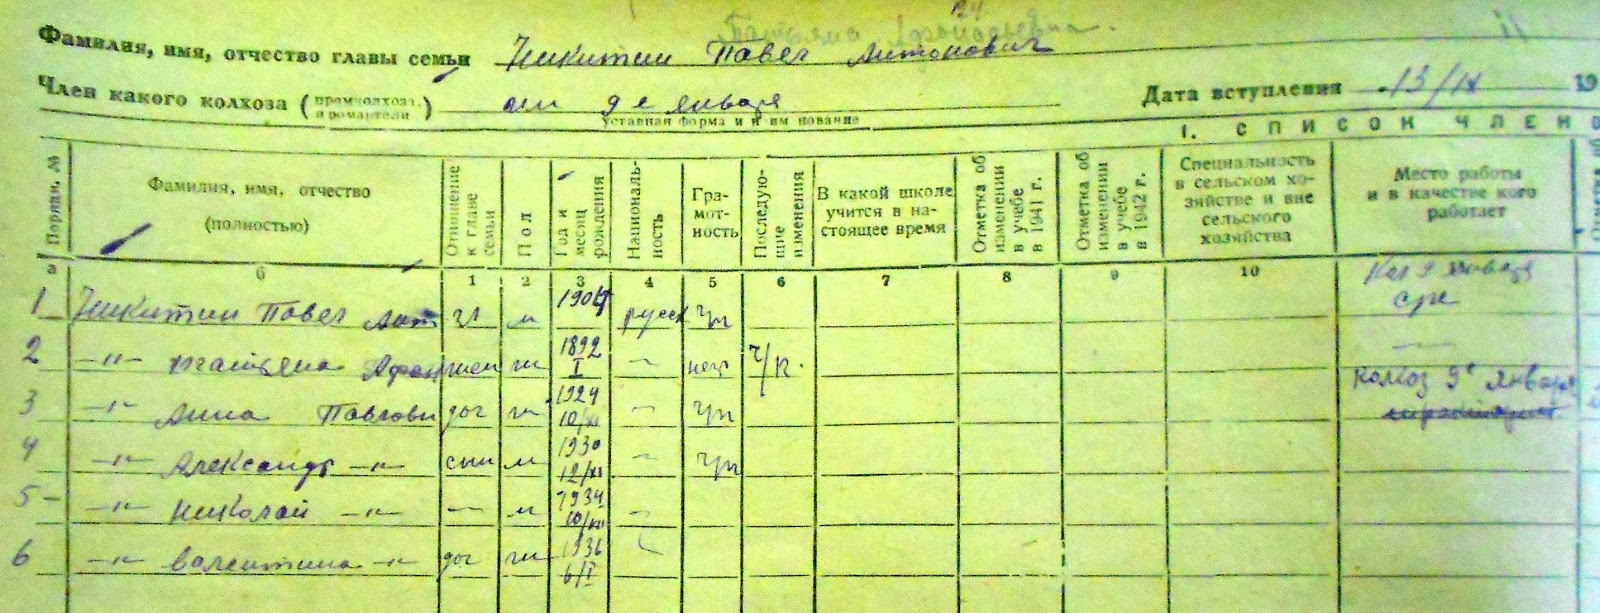 Татьяна Афанасьевна.
Фамилия, имя, отчество главы семьи Никитин Павел Антонович
Член какого колхоза (промколхоза, промартели) им 9е января Дата вступления 13/IX 19
уставная форма и наименование
I. СПИСОК ЧЛЕНО
Порядк. № Фамилия, имя, отчество (полностью) Отношение к главе семьи Пол Год и месяц рождения Националь-ность Гра-мот-ность Последую-щие изменения В какой школе учится в на-стоящее время Отметка об изменении в учебе в 1941 г. Отметка об изменении в учебе в 1942 г. Специальность в сельском хо-зяйстве и вне сельского хозяйства Место работы и в качестве кого работает
а б 1 2 3 4 5 6 7 8 9 10
1 Никитин Павел Ант гл м русск гр Кол 9 января
2 —"— Татьяна Афан жен ж 1892 I — нег —
3 —"— Анна Павловн доч ж 1924 — гр Колхоз 9е января
4 —"— Александр —"— сын м 1930 12/XI — гр
5 —"— Николай —"— — м 1934 —
6 —"— Валентина —"— доч ж 1936 6/I